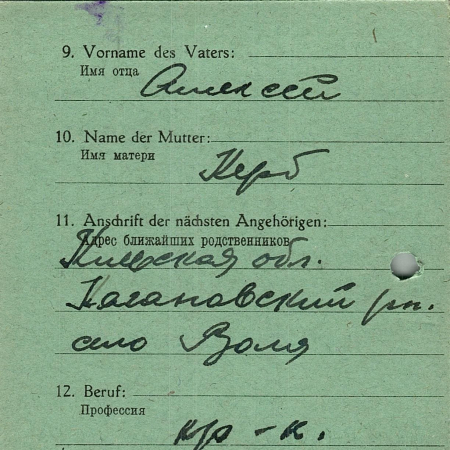 9. Vorname des Vaters:
Имя отца
Алексей
10. Name der Mutter:
Имя матери
Керб
11. Anschrift der nächsten Angehörigen:
Адрес ближайших родственников
Киевская обл.
Кагановский рн.
село Воля
12. Beruf:
Профессия
кр-к.